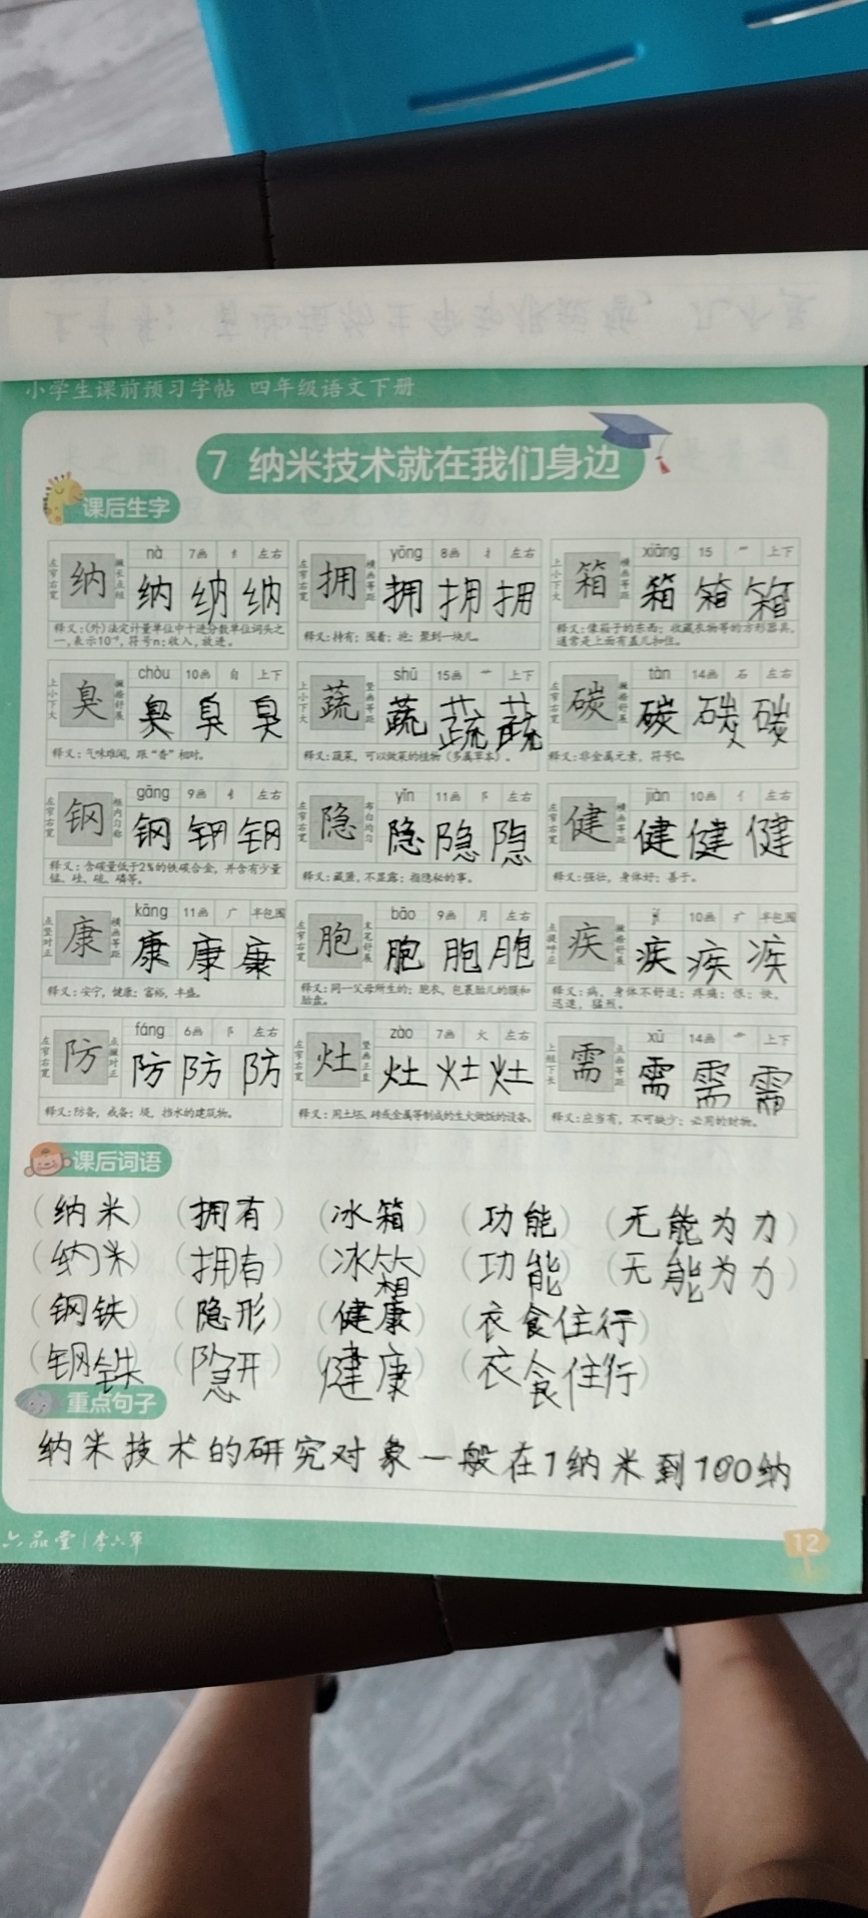 小学生课前预习字帖 四年级语文下册
7 纳米技术就在我们身边
课后生字
nà 7画 纟 左右
左窄右宽 纳 撇长点短 纳 纳 纳
释义：(外)法定计量单位中十进分数单位词头之
一，表示10⁻⁹，符号n；收入，放进。
yōng 8画 扌 左右
左窄右宽 拥 横画等距 拥 拥 拥
释义：持有；围着；抱；聚到一块儿。
xiāng 15 ⺮ 上下
上小下大 箱 横画等距 箱 箱 箱
释义：像箱子的东西；收藏衣物等的方形器具，
通常是上面有盖儿扣住。
chòu 10画 自 上下
上小下大 臭 撇捺舒展 臭 臭 臭
释义：气味难闻，跟“香”相对。
shū 15画 艹 上下
上小下大 蔬 竖画等距 蔬 蔬 蔬
释义：蔬菜，可以做菜的植物（多属草本）。
tàn 14画 石 左右
左窄右宽 碳 撇捺舒展 碳 碳 碳
释义：非金属元素，符号C。
gāng 9画 钅 左右
左窄右宽 钢 框内匀称 钢 钢 钢
释义：含碳量低于2%的铁碳合金，并含有少量
锰、硅、硫、磷等。
yǐn 11画 阝 左右
左窄右宽 隐 布白均匀 隐 隐 隐
释义：藏匿，不显露；指隐秘的事。
jiàn 10画 亻 左右
左窄右宽 健 横画等距 健 健 健
释义：强壮，身体好；善于。
kāng 11画 广 半包围
点竖对正 康 横画等距 康 康 康
释义：安宁，健康；富裕，丰盛。
bāo 9画 月 左右
左窄右宽 胞 末笔舒展 胞 胞 胞
释义：同一父母所生的；胞衣，包裹胎儿的膜和
胎盘。
10画 疒 半包围
点提呼应 疾 撇捺舒展 疾 疾 疾
释义：病，身体不舒适；疼痛；恨；快，
迅速，猛烈。
fáng 6画 阝 左右
左窄右宽 防 点撇对正 防 防 防
释义：防备，戒备；堤，挡水的建筑物。
zào 7画 火 左右
左窄右宽 灶 竖画正直 灶 灶 灶
释义：用土坯、砖或金属等制成的生火做饭的设备。
xū 14画 ⻗ 上下
上短下长 需 点画等距 需 需 需
释义：应当有，不可缺少；必用的财物。
课后词语
（纳米）（拥有）（冰箱）（功能）（无能为力）
（纳米）（拥有）（冰箱）（功能）（无能为力）
（钢铁）（隐形）（健康）（衣食住行）
（钢铁）（隐形）（健康）（衣食住行）
重点句子
纳米技术的研究对象一般在1纳米到100纳
六品堂 | 李六军
12